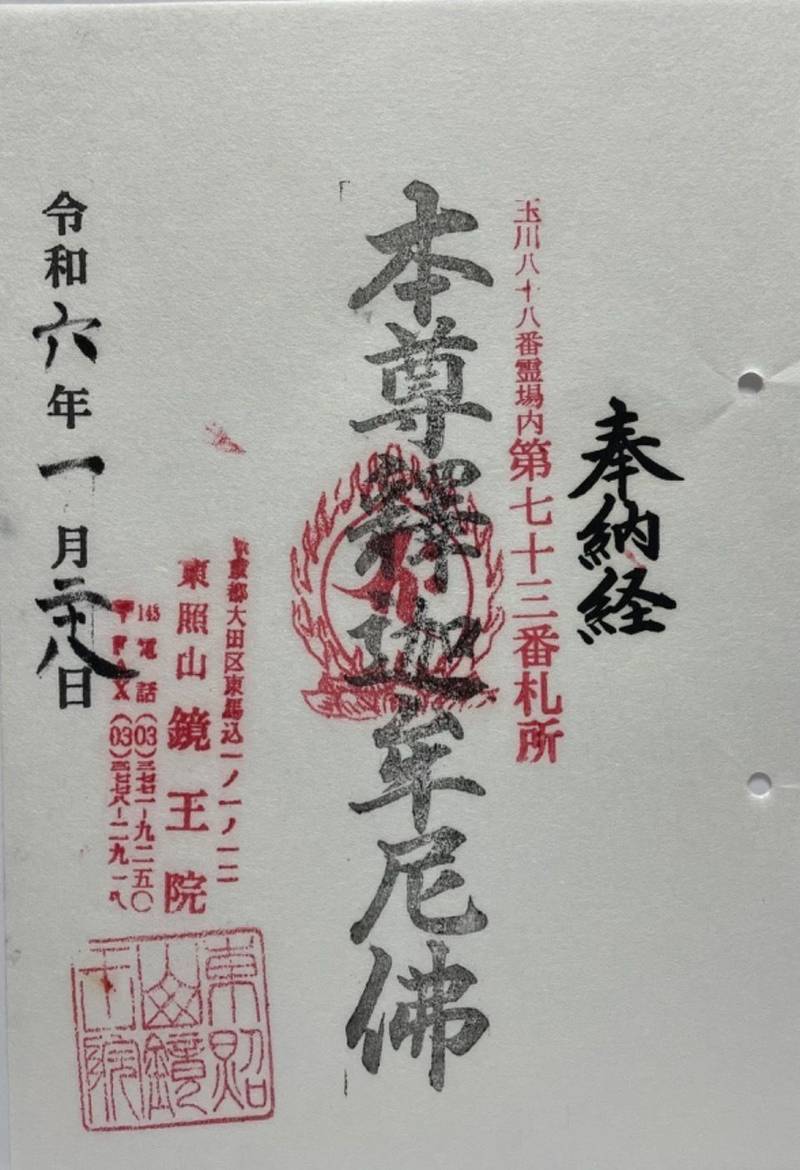 奉納経
玉川八十八番霊場内第七十三番札所
本尊釋迦牟尼佛
東京都大田区東馬込一ノ一ノ一二
東照山 鏡王院
145 電話(03)三七七一ー九二五〇
FAX(03)
東照山鏡王院
令和六年一月二十八日